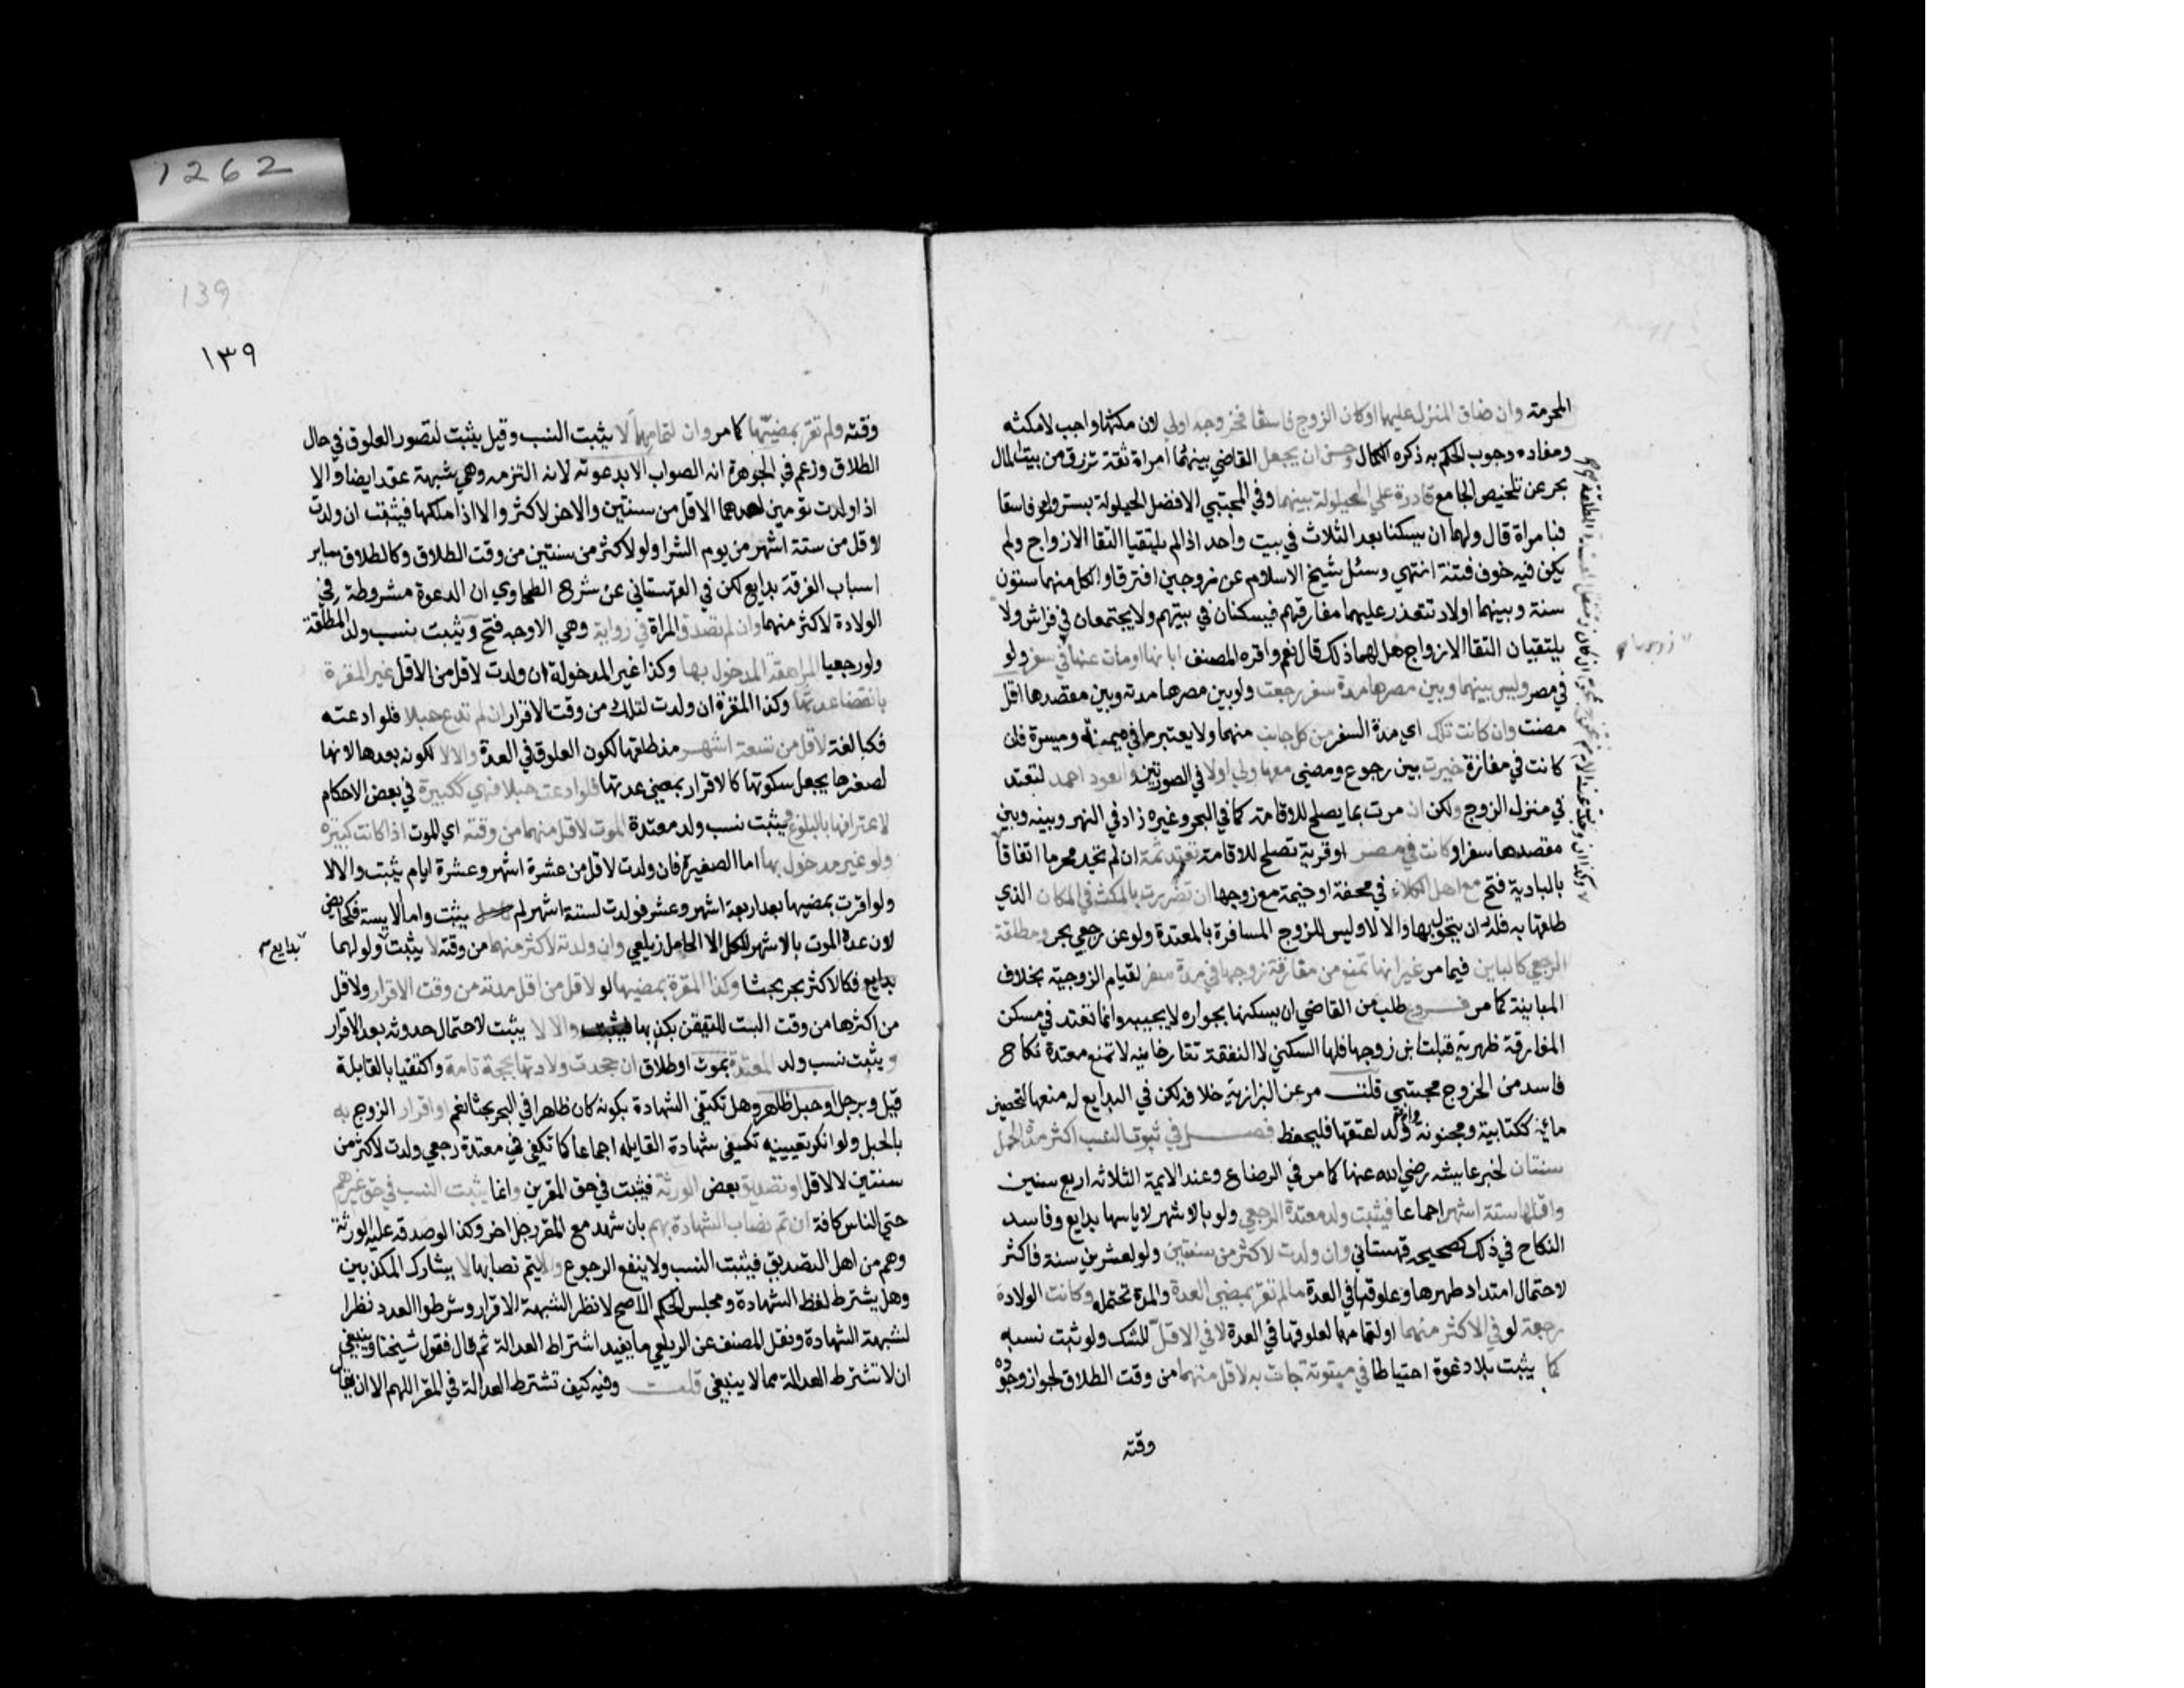 1262
المحرمة وان ضاق المنزل عليهما او كان الزوج فاسقا فخروجه اولي لان مكثها واجب لا مكثه
ومفاده وجوب الحكم به ذكره الكمال وحسن ان يجعل القاضي بينهما امراة ثقة ترزق من بيت المال
بحر عن تلخيص الجامع قادرة علي الحيلولة بينهما وفي المجتبي الافضل الحيلولة بستر ولو فاسقا
فبامراة قال ولهما ان يسكنا بعد الثلاث في بيت واحد اذا لم يلتقيا التقا الازواج ولم
يكن فيه خوف فتنة انتهي وسئل شيخ الاسلام عن زوجين افترقا ولكل منهما ستون
سنة وبينهما اولاد تتعذر عليهما مفارقتهم فيسكنان في بيتهم ولا يجتمعان في فراش ولا
يلتقيان التقا الازواج هل لهما ذلك قال نعم واقره المصنف ابانها او مات عنها في سفر ولو
في مصر وليس بينها وبين مصرها مدة سفر رجعت ولو بين مصرها مدة وبين مقصدها اقل
مضت وان كانت تلك اي مدة السفر من كل جانب منهما ولا يعتبر ما في ميمنة وميسرة فان
كانت في مفازة خيرت بين رجوع ومضي معها ولي اولا في الصورتين والعود احمد لتعتد
في منزل الزوج ولكن ان مرت بما يصلح للاقامة كما في البحر وغيره زاد في النهر وبينه وبين
مقصدها سفر او كانت في مصر او قرية تصلح للاقامة تعتد ثمة ان لم تجد محرما اتفاقا
بالبادية فتح مع اهل الكلاء في محفة او خيمة مع زوجها ان تضررت بالمكث في المكان الذي
طلقها به فله ان يتحول بها والا لا وليس للزوج المسافرة بالمعتدة ولو عن رجعي بحر ومطلقة
الرجعي كالباين فيما مر غير انها تمنع من مفارقة زوجها في مدة سفر لقيام الزوجية بخلاف
المبانة كما مر فروع طلب من القاضي ان يسكنها بجواره لا يجيبه وانما تعتد في مسكن
المفارقة ظهرية قبلت ابن زوجها فلها السكني لا النفقة تتارخانيه لا تمنع معتدة نكاح
فاسد من الخروج مجتبي قلت مر عن البزازية خلافه لكن في البدايع له منعها لتحصين
مائه ككتابية ومجنونة وام ولد اعتقها فليحفظ فصل في ثبوت النسب اكثر مدة الحمل
سنتان لخبر عايشه رضي الله عنها كما مر في الرضاع وعند الايمة الثلاثه اربع سنين
واقلها ستة اشهر اجماعا فيثبت ولد معتدة الرجعي ولو بالاشهر لاياسها بدايع وفاسد
النكاح في ذلك كصحيحه قهستاني وان ولدت لاكثر من سنتين ولو لعشرين سنة فاكثر
لاحتمال امتداد طهرها وعلوقها في العدة ما لم تقر بمضي العدة والمدة تحتمله وكانت الولادة
رجعة لو في الاكثر منهما او لتمامهما لعلوقها في العدة لا في الاقل للشك ولو ثبت نسبه
كما يثبت بلا دعوة احتياطا في مبتوتة جات به لاقل منهما من وقت الطلاق لجواز وجوده
وقته
139
١٣٩
وقته ولم تقر بمضيها كما مر وان لتمامهما لا يثبت النسب وقيل يثبت لتصور العلوق في حال
الطلاق وزعم في الجوهرة انه الصواب الا بدعوته لانه التزمه وهي شبهة عقد ايضا والا
اذا ولدت توءمين احدهما لاقل من سنتين والاخر لاكثر والا اذا ملكها فيثبت ان ولدت
لاقل من ستة اشهر من يوم الشرا ولو لاكثر من سنتين من وقت الطلاق وكالطلاق ساير
اسباب الفرقة بدايع لكن في القهستاني عن شرح الطحاوي ان الدعوة مشروطة في
الولادة لاكثر منهما وان لم تصدق المراة في رواية وهي الاوجه فتح ويثبت نسب ولد المطلقة
ولو رجعيا المراهقة المدخول بها وكذا غير المدخولة ان ولدت لاقل من الاقل غير المقرة
بانقضا عدتها وكذا المقرة ان ولدت لذلك من وقت الاقرار ان لم تدع حبلا فلو ادعته
فكبالغة لاقل من تسعة اشهر مذ طلقها لكون العلوق في العدة والا لا لكونه بعدها لانها
لصغرها يجعل سكوتها كالاقرار بمضي عدتها فلو ادعت حبلا فهي ككبيرة في بعض الاحكام
لاعترافها بالبلوغ ويثبت نسب ولد معتدة الموت لاقل منهما من وقته اي الموت اذا كانت كبيرة
ولو غير مدخول بها اما الصغيرة فان ولدت لاقل من عشرة اشهر وعشرة ايام يثبت والا لا
ولو اقرت بمضيها بعد اربعة اشهر وعشر فولدت لستة اشهر لم يثبت واما الايسة فكحايض
لان عدة الموت بالاشهر للكل الا الحامل زيلعي وان ولدته لاكثر منهما من وقته لا يثبت ولو لهما
بدايع
بدايع فكالاكثر بحر بحثا وكذا المقرة بمضيها لو لاقل من اقل مدته من وقت الاقرار ولاقل
من اكثرها من وقت البت للتيقن بكذبها والا لا يثبت لاحتمال حدوثه بعد الاقرار
ويثبت نسب ولد المعتدة بموت او طلاق ان جحدت ولادتها بحجة تامة واكتفيا بالقابلة
قيل وبرجل او حبل ظاهر وهل تكفي الشهادة بكونه كان ظاهرا في البحر بحثا نعم او اقرار الزوج به
بالحبل ولو انكر تعيينه تكفي شهادة القابله اجماعا كما تكفي في معتدة رجعي ولدت لاكثر من
سنتين لا لاقل او تصديق بعض الورثة فيثبت في حق المقرين وانما يثبت النسب في حق غيرهم
حتي الناس كافة ان تم نصاب الشهادة بهم بان شهد مع المقر رجل اخر وكذا لو صدقه عليه الورثة
وهم من اهل التصديق فيثبت النسب ولا ينفع الرجوع والا يتم نصابها لا يشارك المكذبين
وهل يشترط لفظ الشهادة ومجلس الحكم الاصح لا نظر الشبهة الاقرار وشرطوا العدد نظرا
لشبهة الشهادة ونقل المصنف عن الزيلعي ما يفيد اشتراط العدالة ثم قال فقول شيخنا وينبغي
ان لا تشترط العدالة مما لا ينبغي قلت وفيه كيف تشترط العدالة في المقر اللهم الا ان يقال